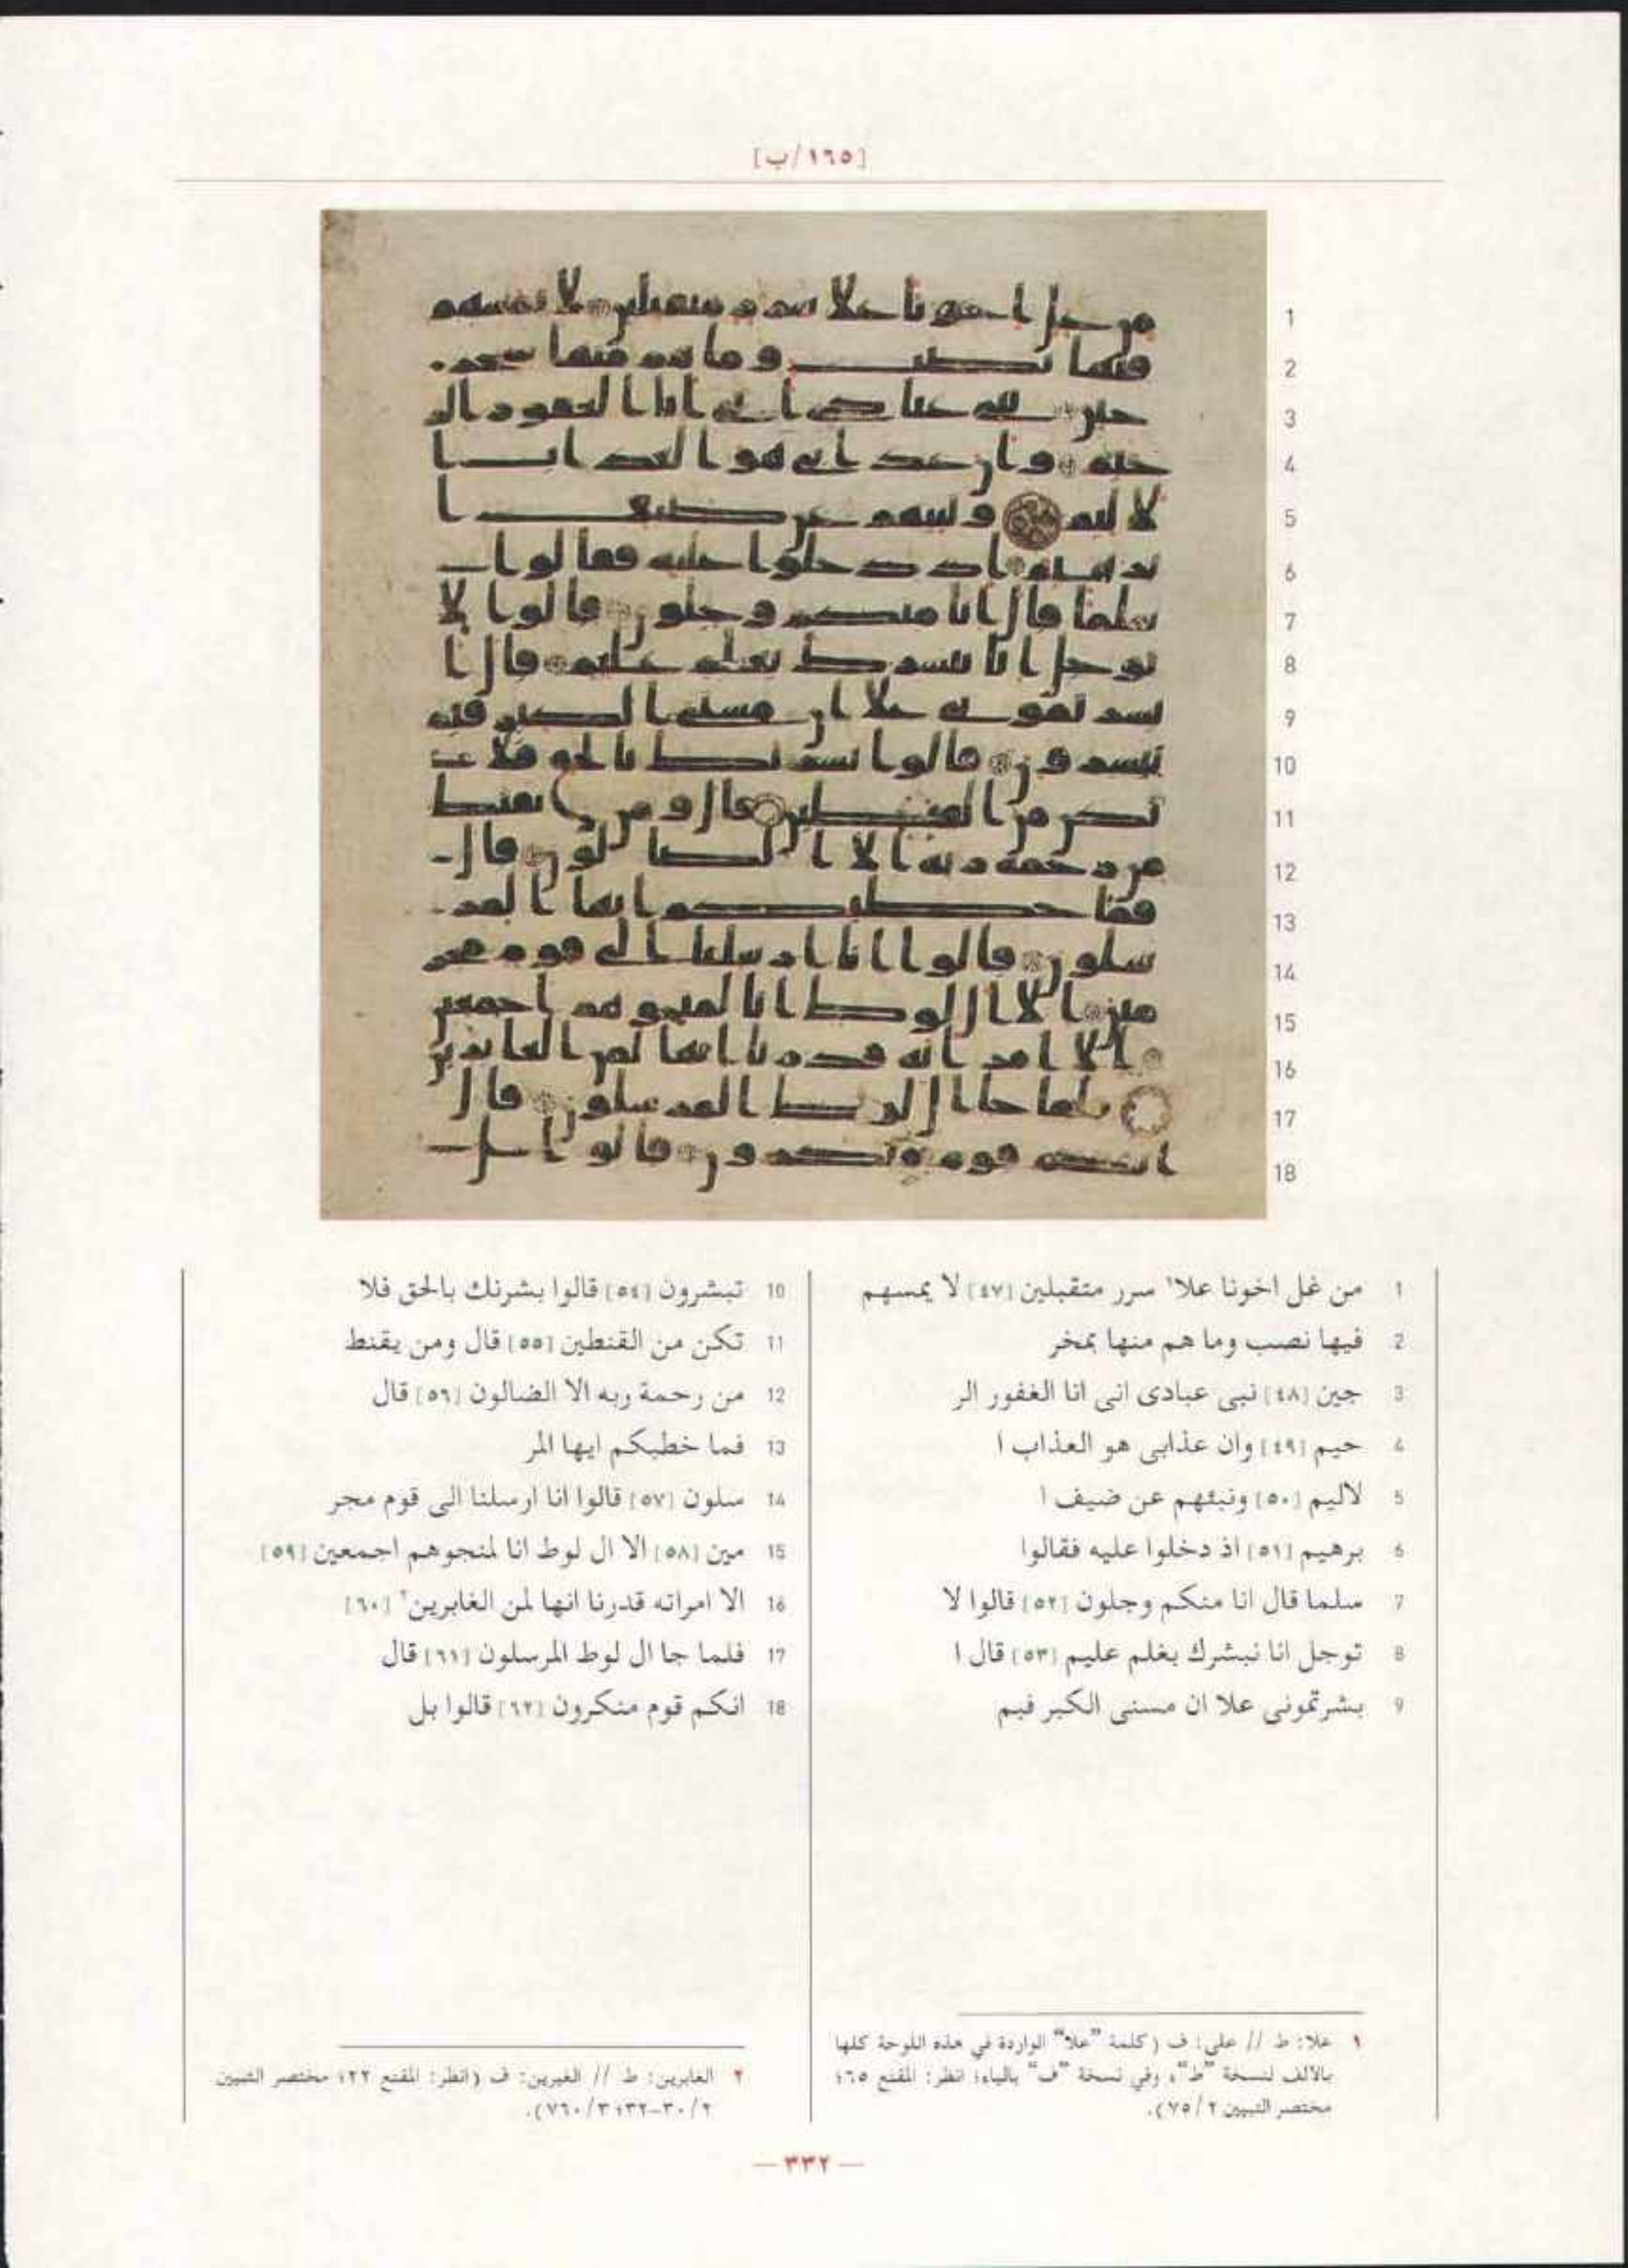 [١٦٥/ب]
1
2
3
4
5
6
7
8
9
10
11
12
13
14
15
16
17
18
1 من غل اخونا علا١ سرر متقبلين [٤٧] لا يمسهم
2 فيها نصب وما هم منها بمخر
3 جين [٤٨] نبى عبادى انى انا الغفور الر
4 حيم [٤٩] وان عذابى هو العذاب ا
5 لاليم [٥٠] ونبئهم عن ضيف ا
6 برهيم [٥١] اذ دخلوا عليه فقالوا
7 سلما قال انا منكم وجلون [٥٢] قالوا لا
8 توجل انا نبشرك بغلم عليم [٥٣] قال ا
9 بشرتمونى علا ان مسنى الكبر فبم
10 تبشرون [٥٤] قالوا بشرنك بالحق فلا
11 تكن من القنطين [٥٥] قال ومن يقنط
12 من رحمة ربه الا الضالون [٥٦] قال
13 فما خطبكم ايها المر
14 سلون [٥٧] قالوا انا ارسلنا الى قوم مجر
15 مين [٥٨] الا ال لوط انا لمنجوهم اجمعين [٥٩]
16 الا امراته قدرنا انها لمن الغابرين٢ [٦٠]
17 فلما جا ال لوط المرسلون [٦١] قال
18 انكم قوم منكرون [٦٢] قالوا بل
١ علا: ط // على: ف (كلمة "علا" الواردة في هذه اللوحة كلها
بالالف لنسخة "ط"، وفي نسخة "ف" بالياء؛ انظر: المقنع ٦٥؛
مختصر التبيين ٢/ ٧٥).
٢ الغابرين: ط // الغبرين: ف (انظر: المقنع ٢٢؛ مختصر التبيين
٢/ ٣٠-٣٢؛ ٣/ ٧٦٠).
— ٣٣٢ —